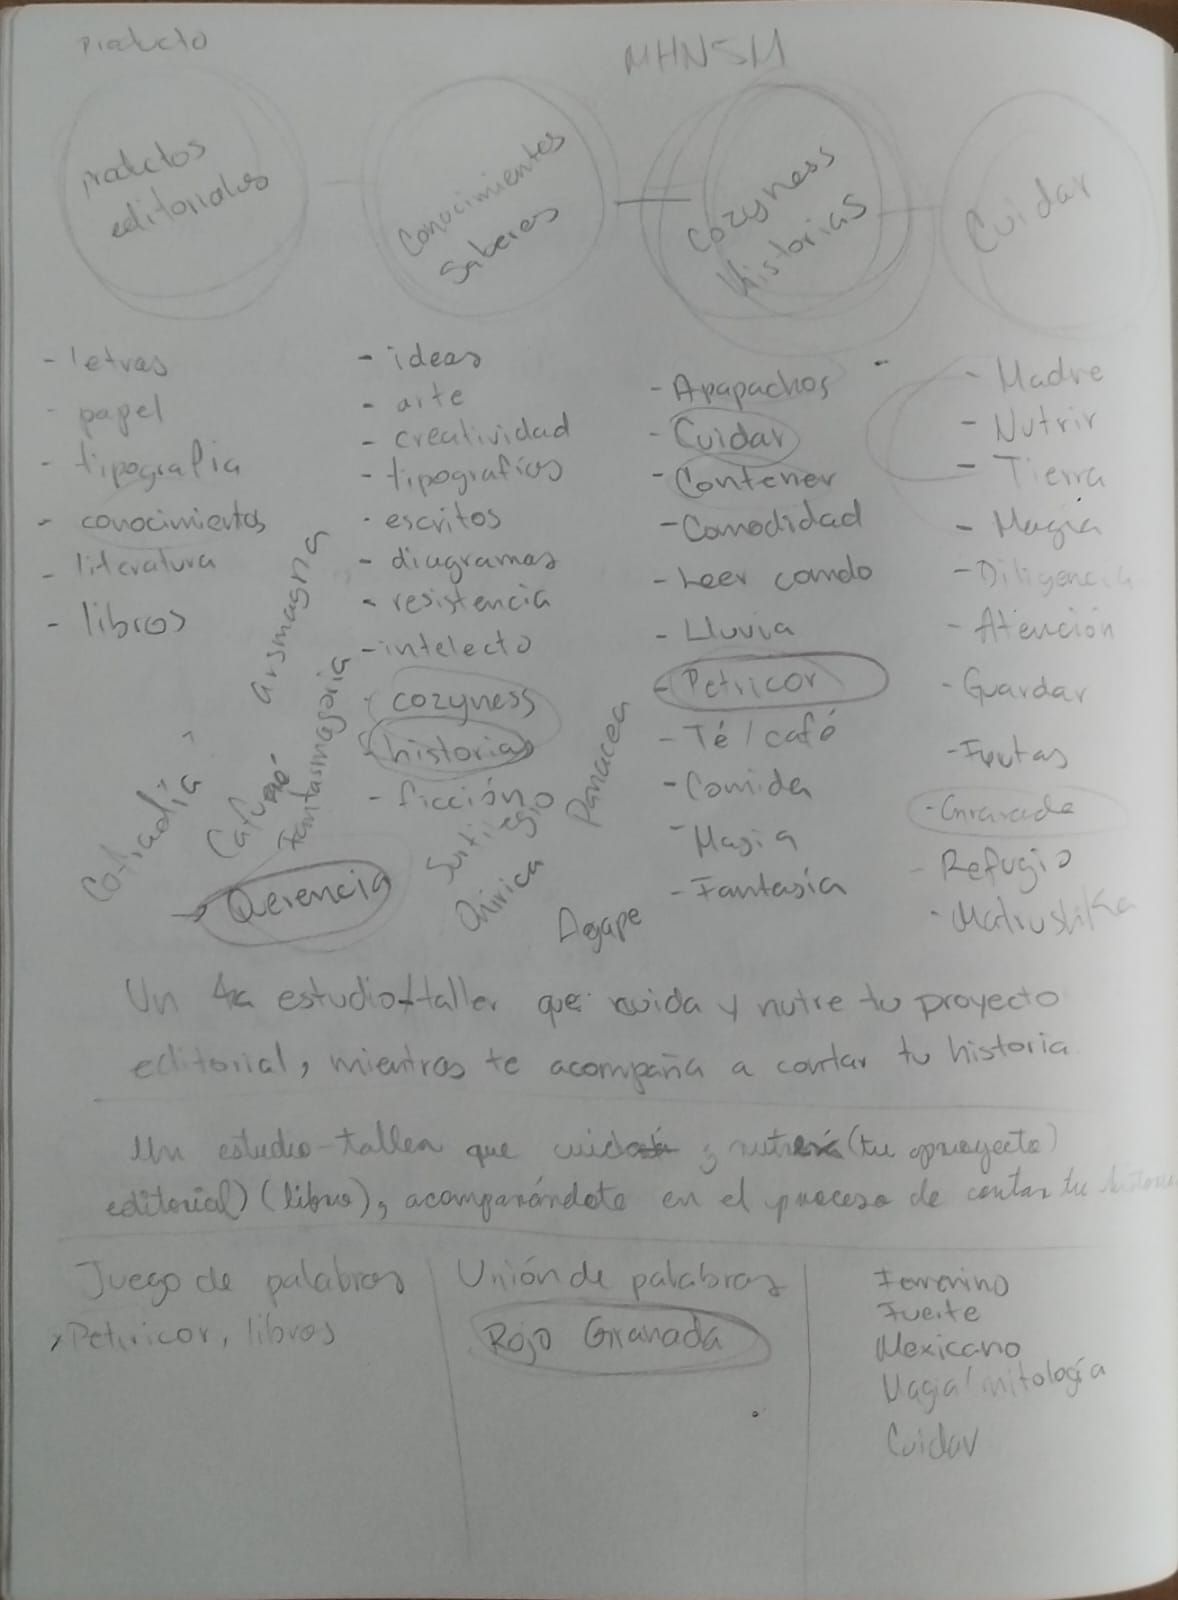 Producto
MHNSM
productos
editoriales
Conocimientos
Saberes
Cozyness
Historias
Cuidar
- letras
- papel
- tipografia
- conocimientos
- literatura
- libros
- ideas
- arte
- creatividad
- tipografias
- escritos
- diagramas
- resistencia
- intelecto
- cozyness
- historias
- ficción
- Apapachos
- Cuidar
- Contener
- Comodidad
- Leer cando
- Lluvia
- Petricor
- Té / café
- Comida
- Magia
- Fantasía
- Madre
- Nutrir
- Tierra
- Magia
- Diligencia
- Atención
- Guardar
- Frutas
- Granada
- Refugio
- Matrushka
arsmagna
Fantasmagoria
Cofradía
Querencia
Sortilegio
Onirica
Panacea
Agape
Un estudio-taller que cuida y nutre tu proyecto
editorial, mientras te acompaña a contar tu historia.
Un estudio-taller que cuida y nutre (tu proyecto)
editorial) (libro), acompañándote en el proceso de contar tu historia
Juego de palabras
Petricor, libros
Unión de palabras
Rojo Granada
Femenino
Fuerte
Mexicano
Magia/mitología
Cuidar